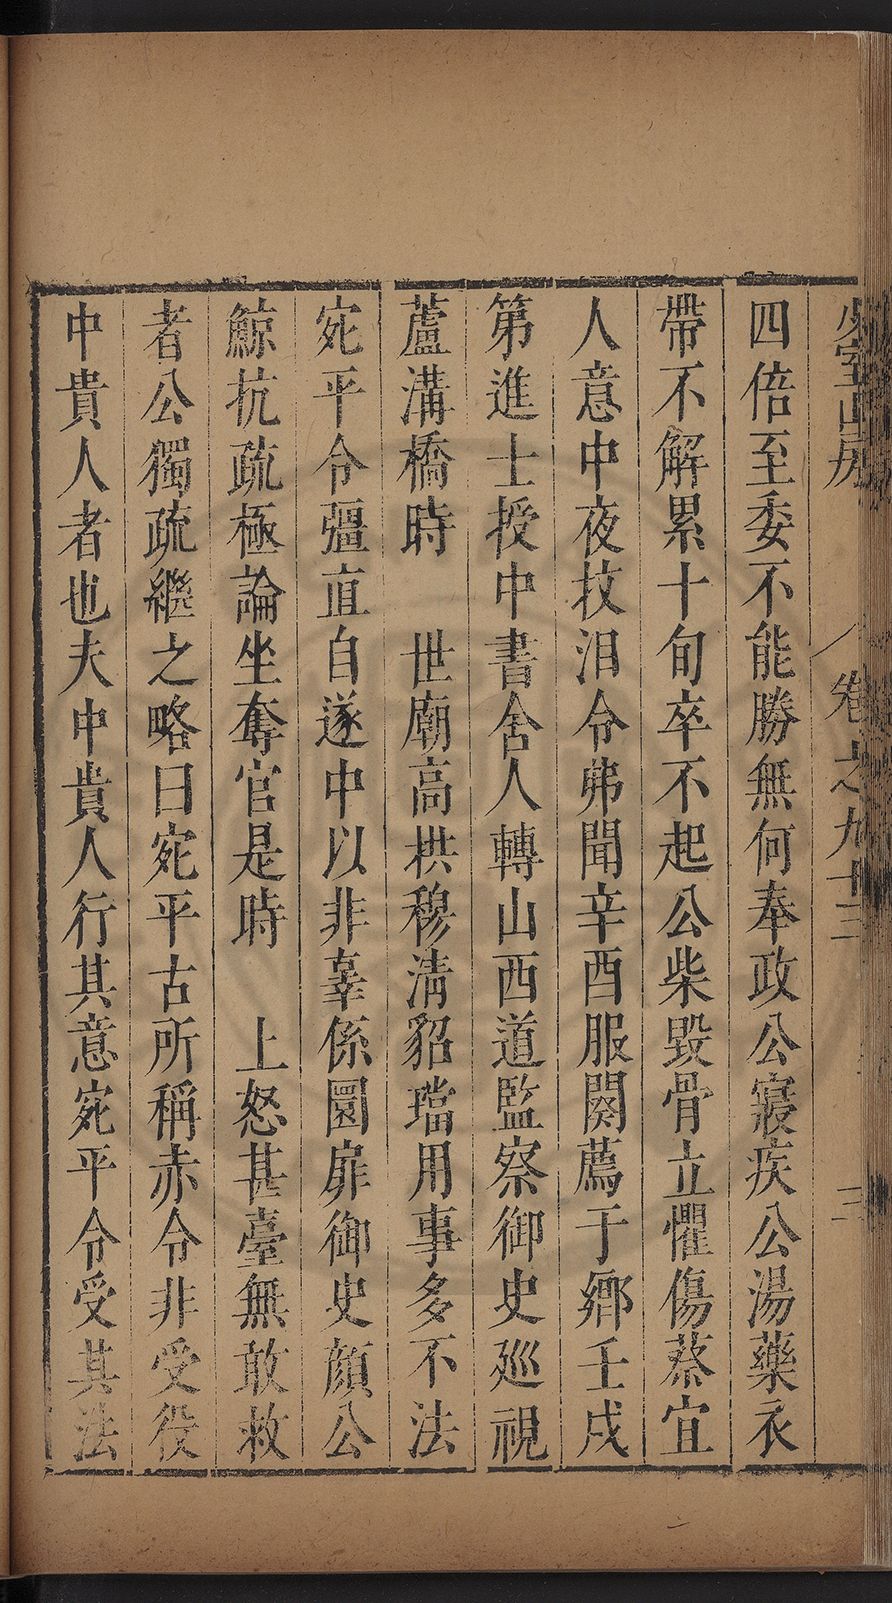 少室山房
卷之九十三
三
四倍至委不能勝無何奉政公寢疾公湯藥衣
帶不解累十旬卒不起公柴毀骨立懼傷蔡宜
人意中夜抆泪令弗聞辛酉服闋薦于鄉壬戌
第進士授中書舍人轉山西道監察御史廵視
蘆溝橋時　世廟高拱穆清貂璫用事多不法
宛平令彊直自遂中以非辜係圜扉御史顔公
鯨抗疏極論坐奪官是時　上怒甚臺無敢救
者公獨疏繼之略曰宛平古所稱赤令非受役
中貴人者也夫中貴人行其意宛平令受其法